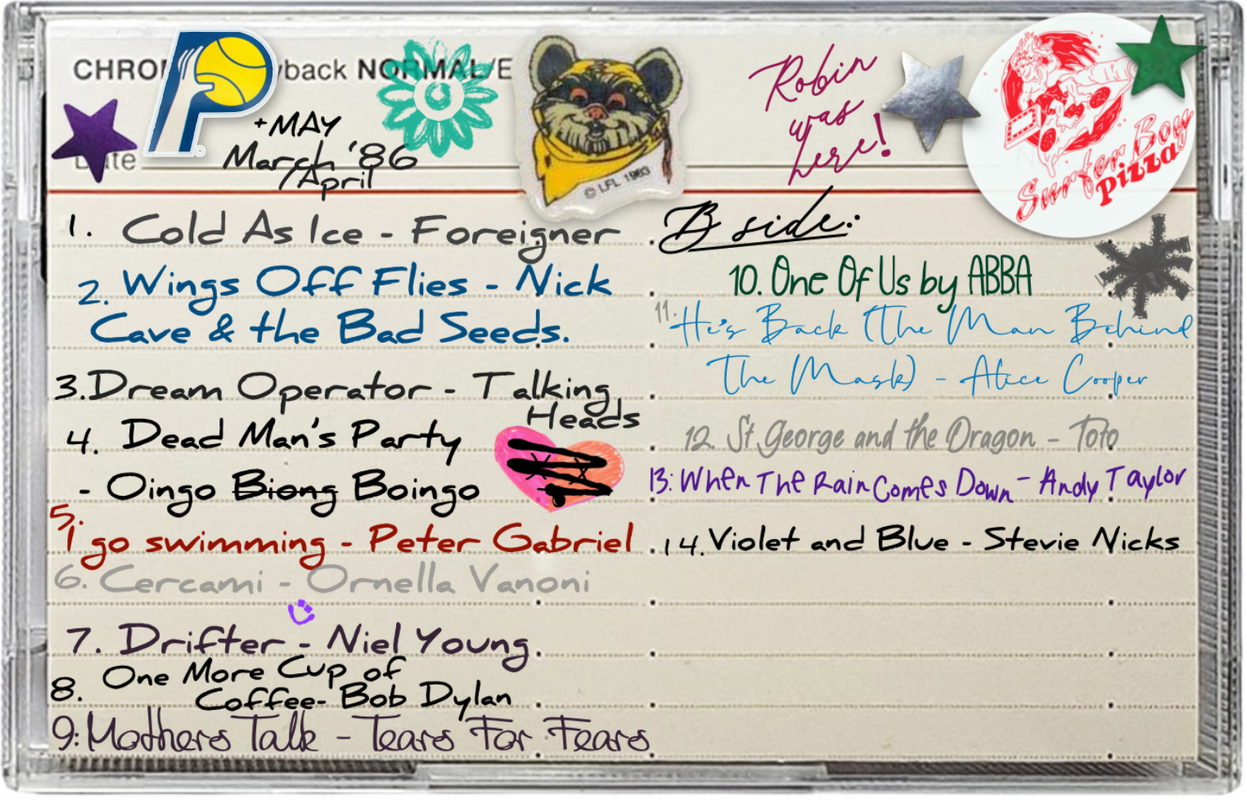 CHRO yback NORMAL/E
+MAY
March '86
/April
Date
© LFL 1983
Robin
was
here!
Surfer Boy
Pizza
1. Cold As Ice - Foreigner
2. Wings Off Flies - Nick
Cave & the Bad Seeds.
3. Dream Operator - Talking
Heads
4. Dead Man's Party
- Oingo Biong Boingo
5.
I go swimming - Peter Gabriel
6. Cercami - Ornella Vanoni
7. Drifter - Niel Young
8. One More Cup of
Coffee- Bob Dylan
9: Mothers Talk - Tears For Fears
B side:
10. One Of Us by ABBA
11. He's Back (The Man Behind
The Mask) - Alice Cooper
12. St. George and the Dragon - Toto
13: When The Rain Comes Down - Andy Taylor
14. Violet and Blue - Stevie Nicks